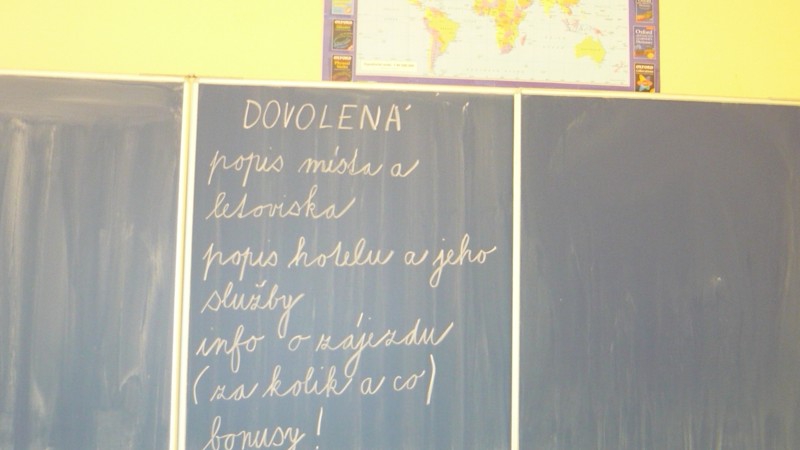 DOVOLENÁ
popis místa a
letoviska
popis hotelu a jeho
služby
info o zájezdu
(za kolik a co)
bonusy!